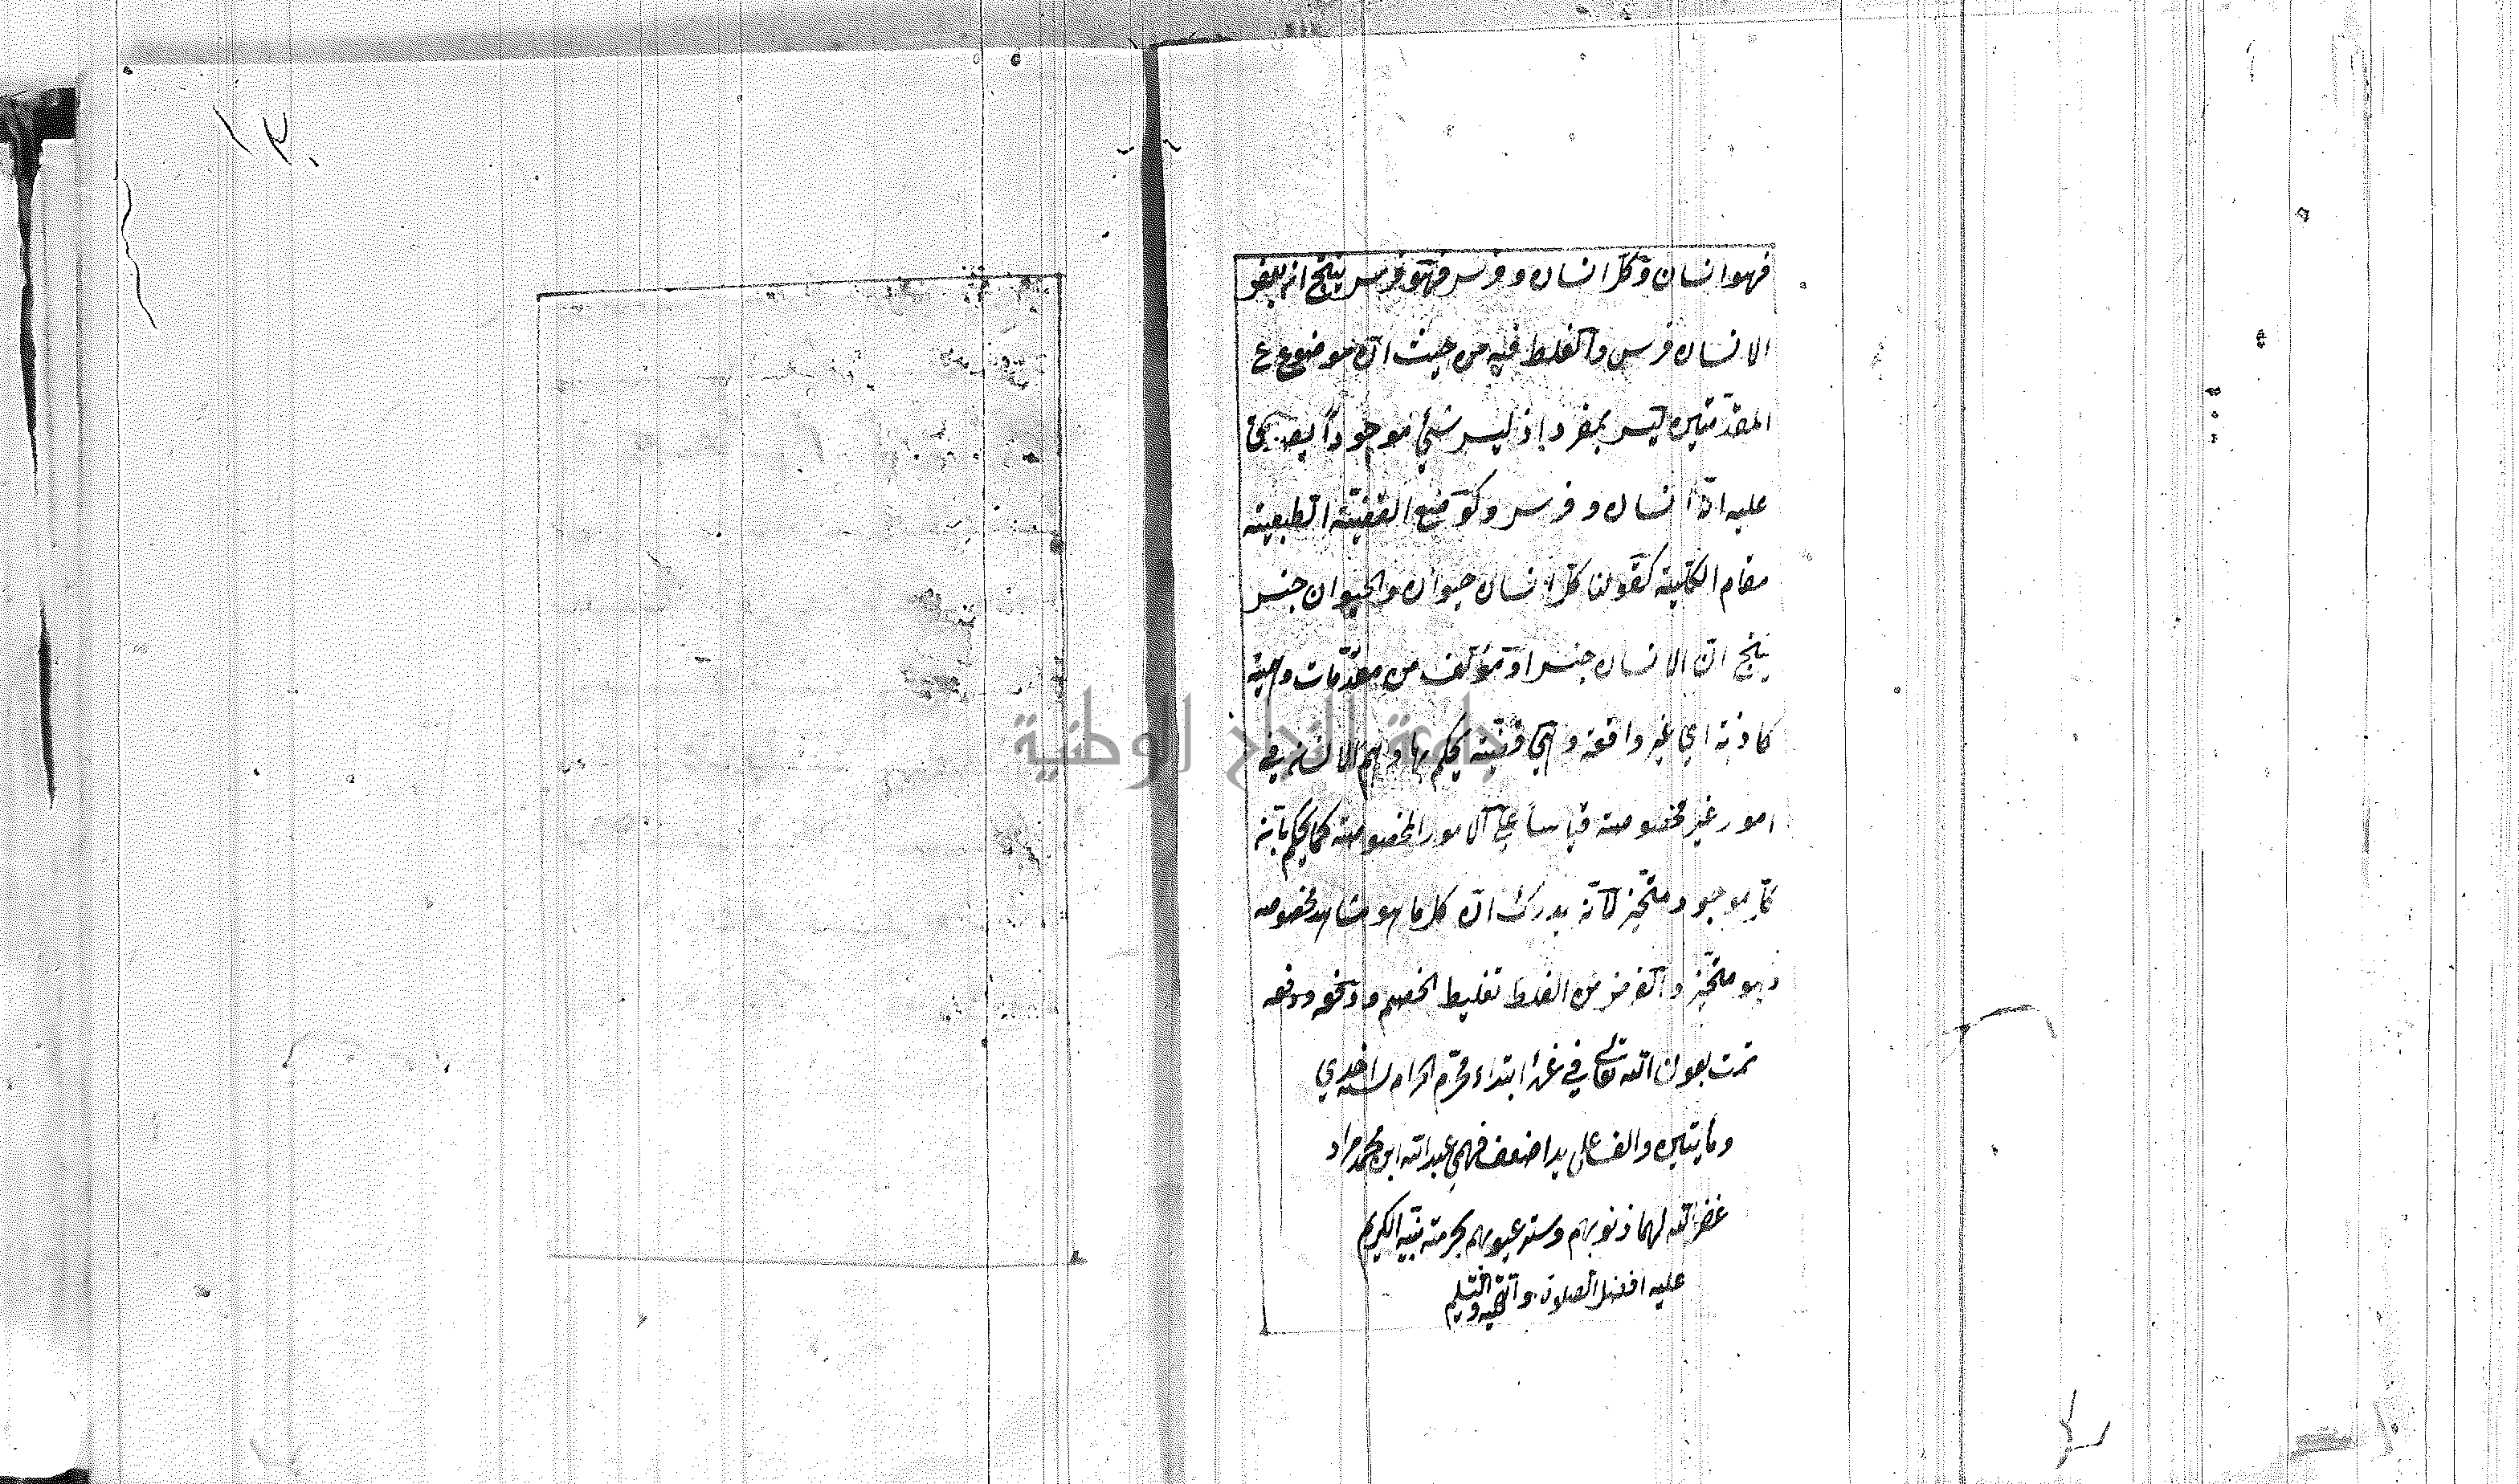 ١٢٠
فهو انسان وكل انسان وفرس فهو فرس ينتج ان بعض
الانسان فرس والغلط فيه من حيث ان موضوع
المقدمتين ليس بمفرد اذ ليس شيء موجودا يصدق
عليه انه انسان وفرس وكوضع القضية الطبيعية
مقام الكلية كقولنا كل انسان حيوان والحيوان جنس
ينتج ان الانسان جنس او مؤلف من مقدمات وهمية
كاذبة اي غير واقعة وهي قضية يحكم بها وهم الانسان في
امور غير مخصوصة قياسا على الامور المخصوصة كما يحكم بانه
كل موجود متحيز لانه يدرك ان كل ما هو مشاهد مخصوصه
فهو متحيز والغرض من الغلط تغليط الخصم ودفعه
تمت بعون الله تعالى في غرة ابتداء محرم الحرام لسنة احدي
ومايتين والف على يد اضعف عبد الله ابن محمد مراد
غفر الله لهما ذنوبهم وستر عيوبهم بحرمة نبيه الكريم
عليه افضل الصلوة والتحية والتسليم
جامعة النجاح الوطنية